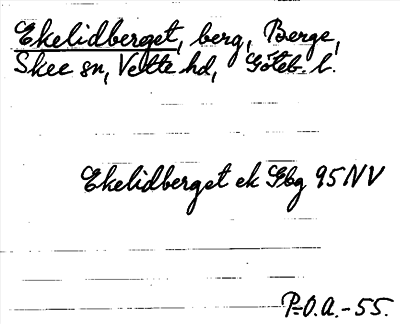 Ekelidberget, berg, Berge,
Skee sn, Vette hd, Göteb. l.
Ekelidberget ek Gbg 95 NV
P-O.A.-55.